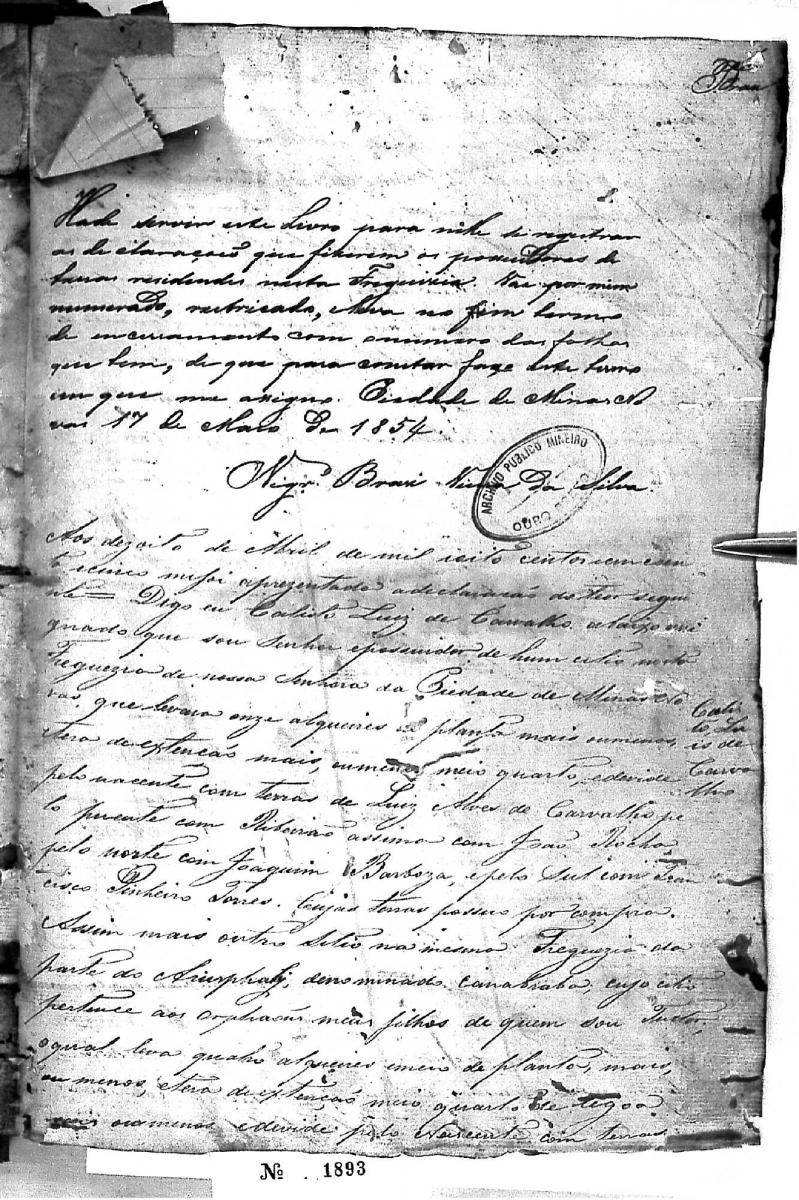 Hade servir este Livro para nelle se registrar
as declaraçoẽs que fizerem os possuidores de
terras residendes nesta Freguizia. Vae por mim
numerado, rubricado, e leva no fim termo
de encerramento com o numero das folhas
que tem, de que para constar faço este termo
em que me assigno. Piedade de Minas No
vas 17 de Maio de 1854.
Vigr.º Braz da Silva.
ARCHIVO PUBLICO MINEIRO
OURO PRETO
Aos dezoito de Abril de mil oito centos e cincoen
ta e cinco me foi aprezentada a declaração do teor segui
nte = Digo eu Calisto Luiz de Carvalho abaixo assi
gnado que sou Senhor e possuidor de hum citio nesta
Freguezia de nossa Senhora da Piedade de Minas No
vas, que levara onze alqueires de planta mais ou menos,
Calis
to Lu
is de
Carva
lho
tera de extenção mais, ou menos meio quarto, e devide
pelo nacente com terras de Luiz Alves de Carvalho pe
lo puente com Ribeirão assima com João Rocha
pelo norte com Joaquim Barboza, e pelo Sul com Fran
cisco Pinheiro Torres. Cujas terras possuo por compra.
Assim mais outro Sitio na mesma Freguezia da
parte do denominado canabraba, cujo citio
pertence aos orphaons meus filhos de quem sou Tutor,
o qual leva quatro alqueires e meio de planta, mais,
ou menos, e tera de extenção meio quarto de legoa,
mais ou menos e devide pelo Nascente com terras
Nº 1893